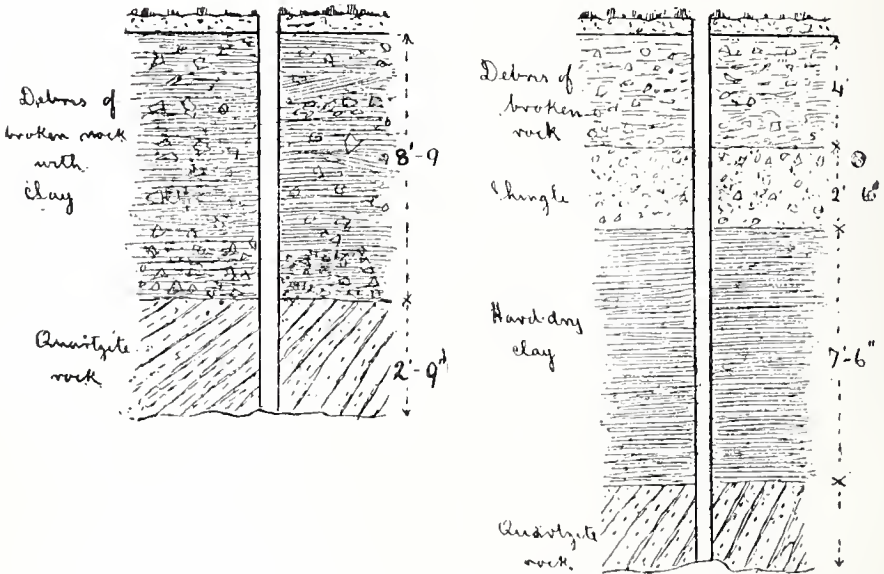 Debris of
broken rock
with
clay
8'-9
Quartzite
rock
2'-9"
Debris of
broken
rock
4'
Shingle
2' 6"
Hard dry
clay
7'-6"
Quartzite
rock.